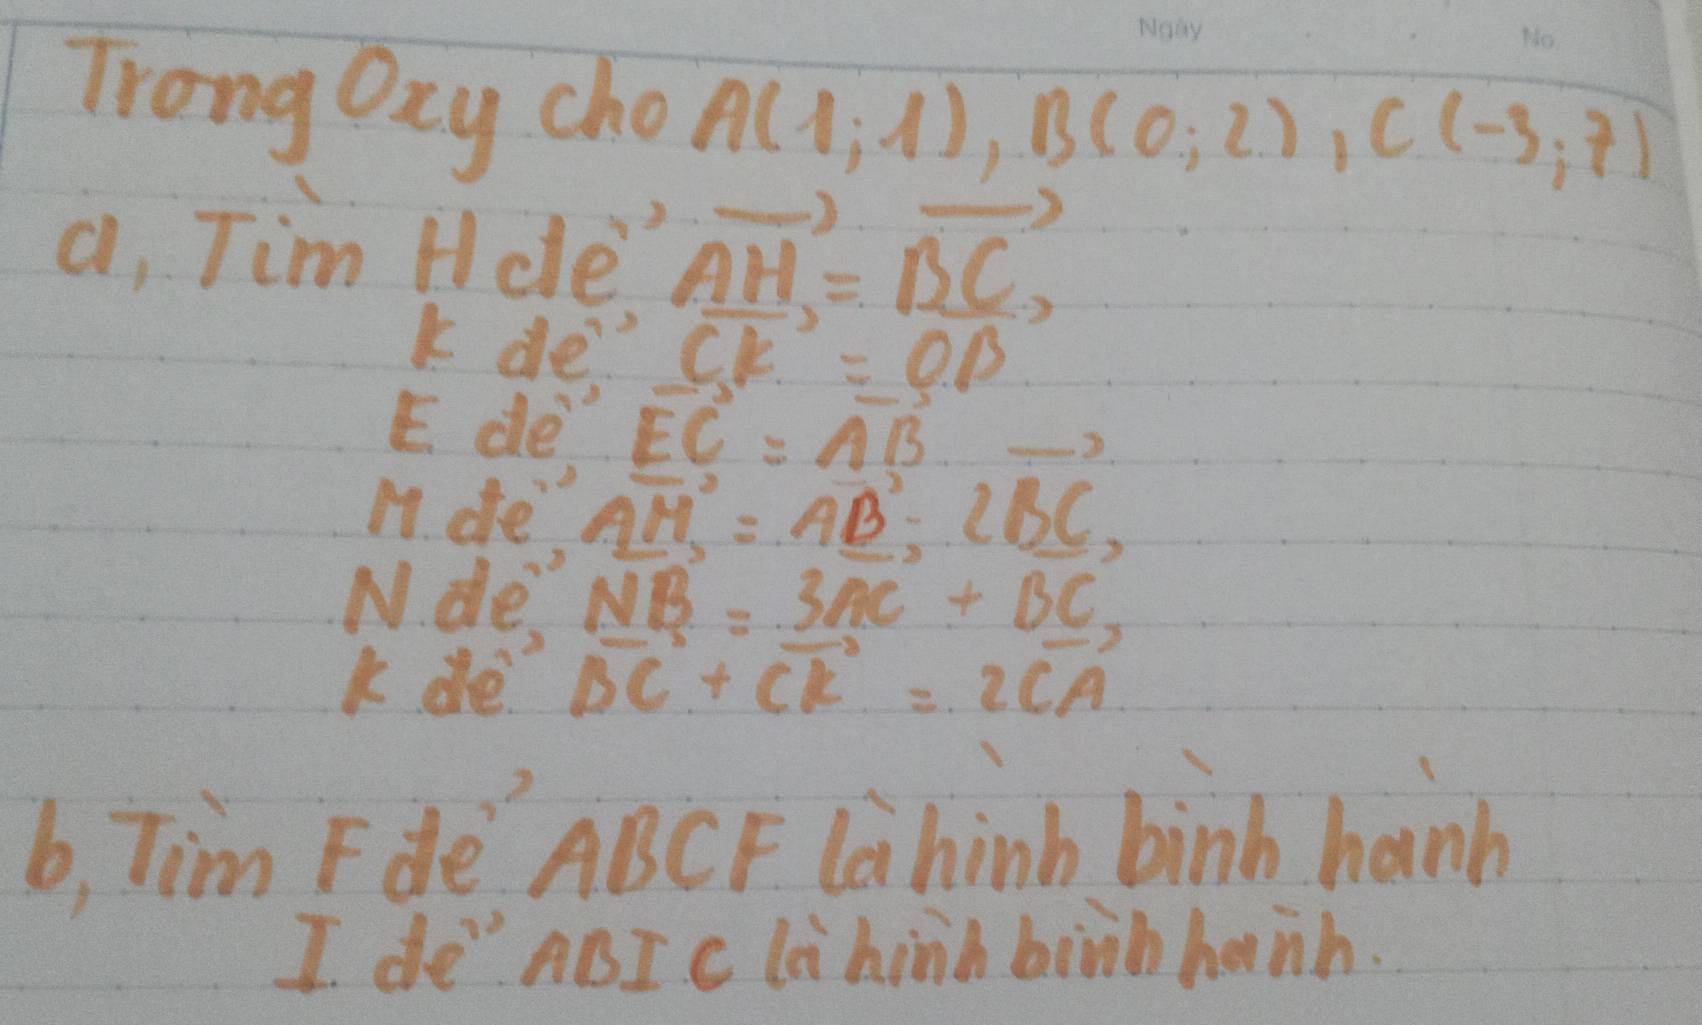 Ngày No
Trong Oxy cho A(1;1), B(0;2), C(-3;7)
a, Tìm H để \overrightarrow{AH} = \overrightarrow{BC},
K để \overrightarrow{CK} = \overrightarrow{OB}
E để \overrightarrow{EC} = \overrightarrow{AB}
M để \overrightarrow{AM} = \overrightarrow{AB} - 2\overrightarrow{BC},
N để \overrightarrow{NB} = 3\overrightarrow{AC} + \overrightarrow{BC},
K để \overrightarrow{BC} + \overrightarrow{CK} = 2\overrightarrow{CA}
b, Tìm F để ABCF là hình bình hành
I để ABIC là hình bình hành.